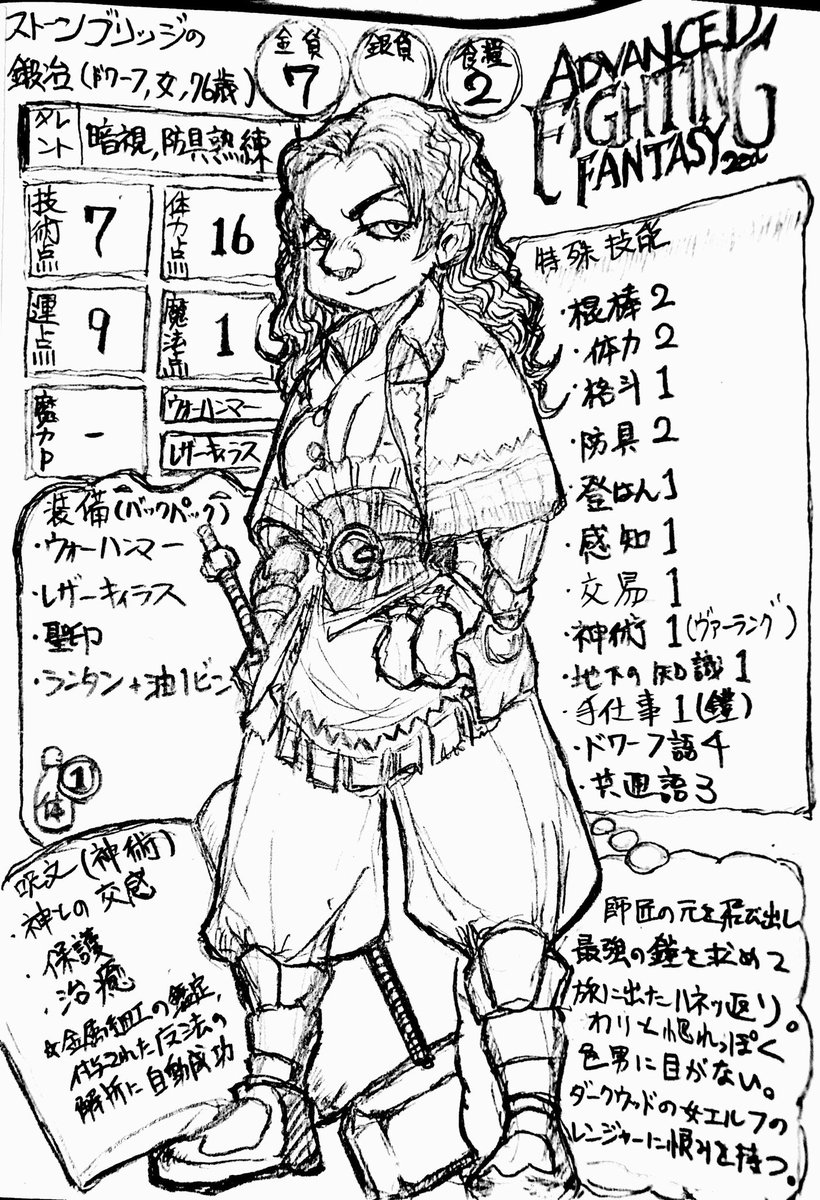 ストーンブリッジの
鍛冶(ドワーフ,女,76歳)
金貨
7
銀貨
食糧
2
ADVANCED
FIGHTING
FANTASY 2nd
タレント
暗視,防具熟練
技術点
7
体力点
16
運点
9
魔法点
1
魔力P
-
ウォーハンマー
レザーキィラス
装備(バックパック)
・ウォーハンマー
・レザーキィラス
・聖印
・ランタン+油1ビン
体
1
特殊技能
・棍棒2
・体力2
・格斗1
・防具2
・登はん1
・感知1
・交易1
・神術1(ヴァーラング)
・地下の知識1
・手仕事1(鎧)
・ドワーフ語4
・共通語3
呪文(神術)
・神との交感
・保護
・治癒
☆金属細工の鑑定,
付与された魔法の
解析に自動成功
師匠の元を飛び出し
最強の鎧を求めて
旅に出たハネッ返り。
わりと惚れっぽく
色男に目がない。
ダークウッドの女エルフの
レンジャーに恨みを持つ。